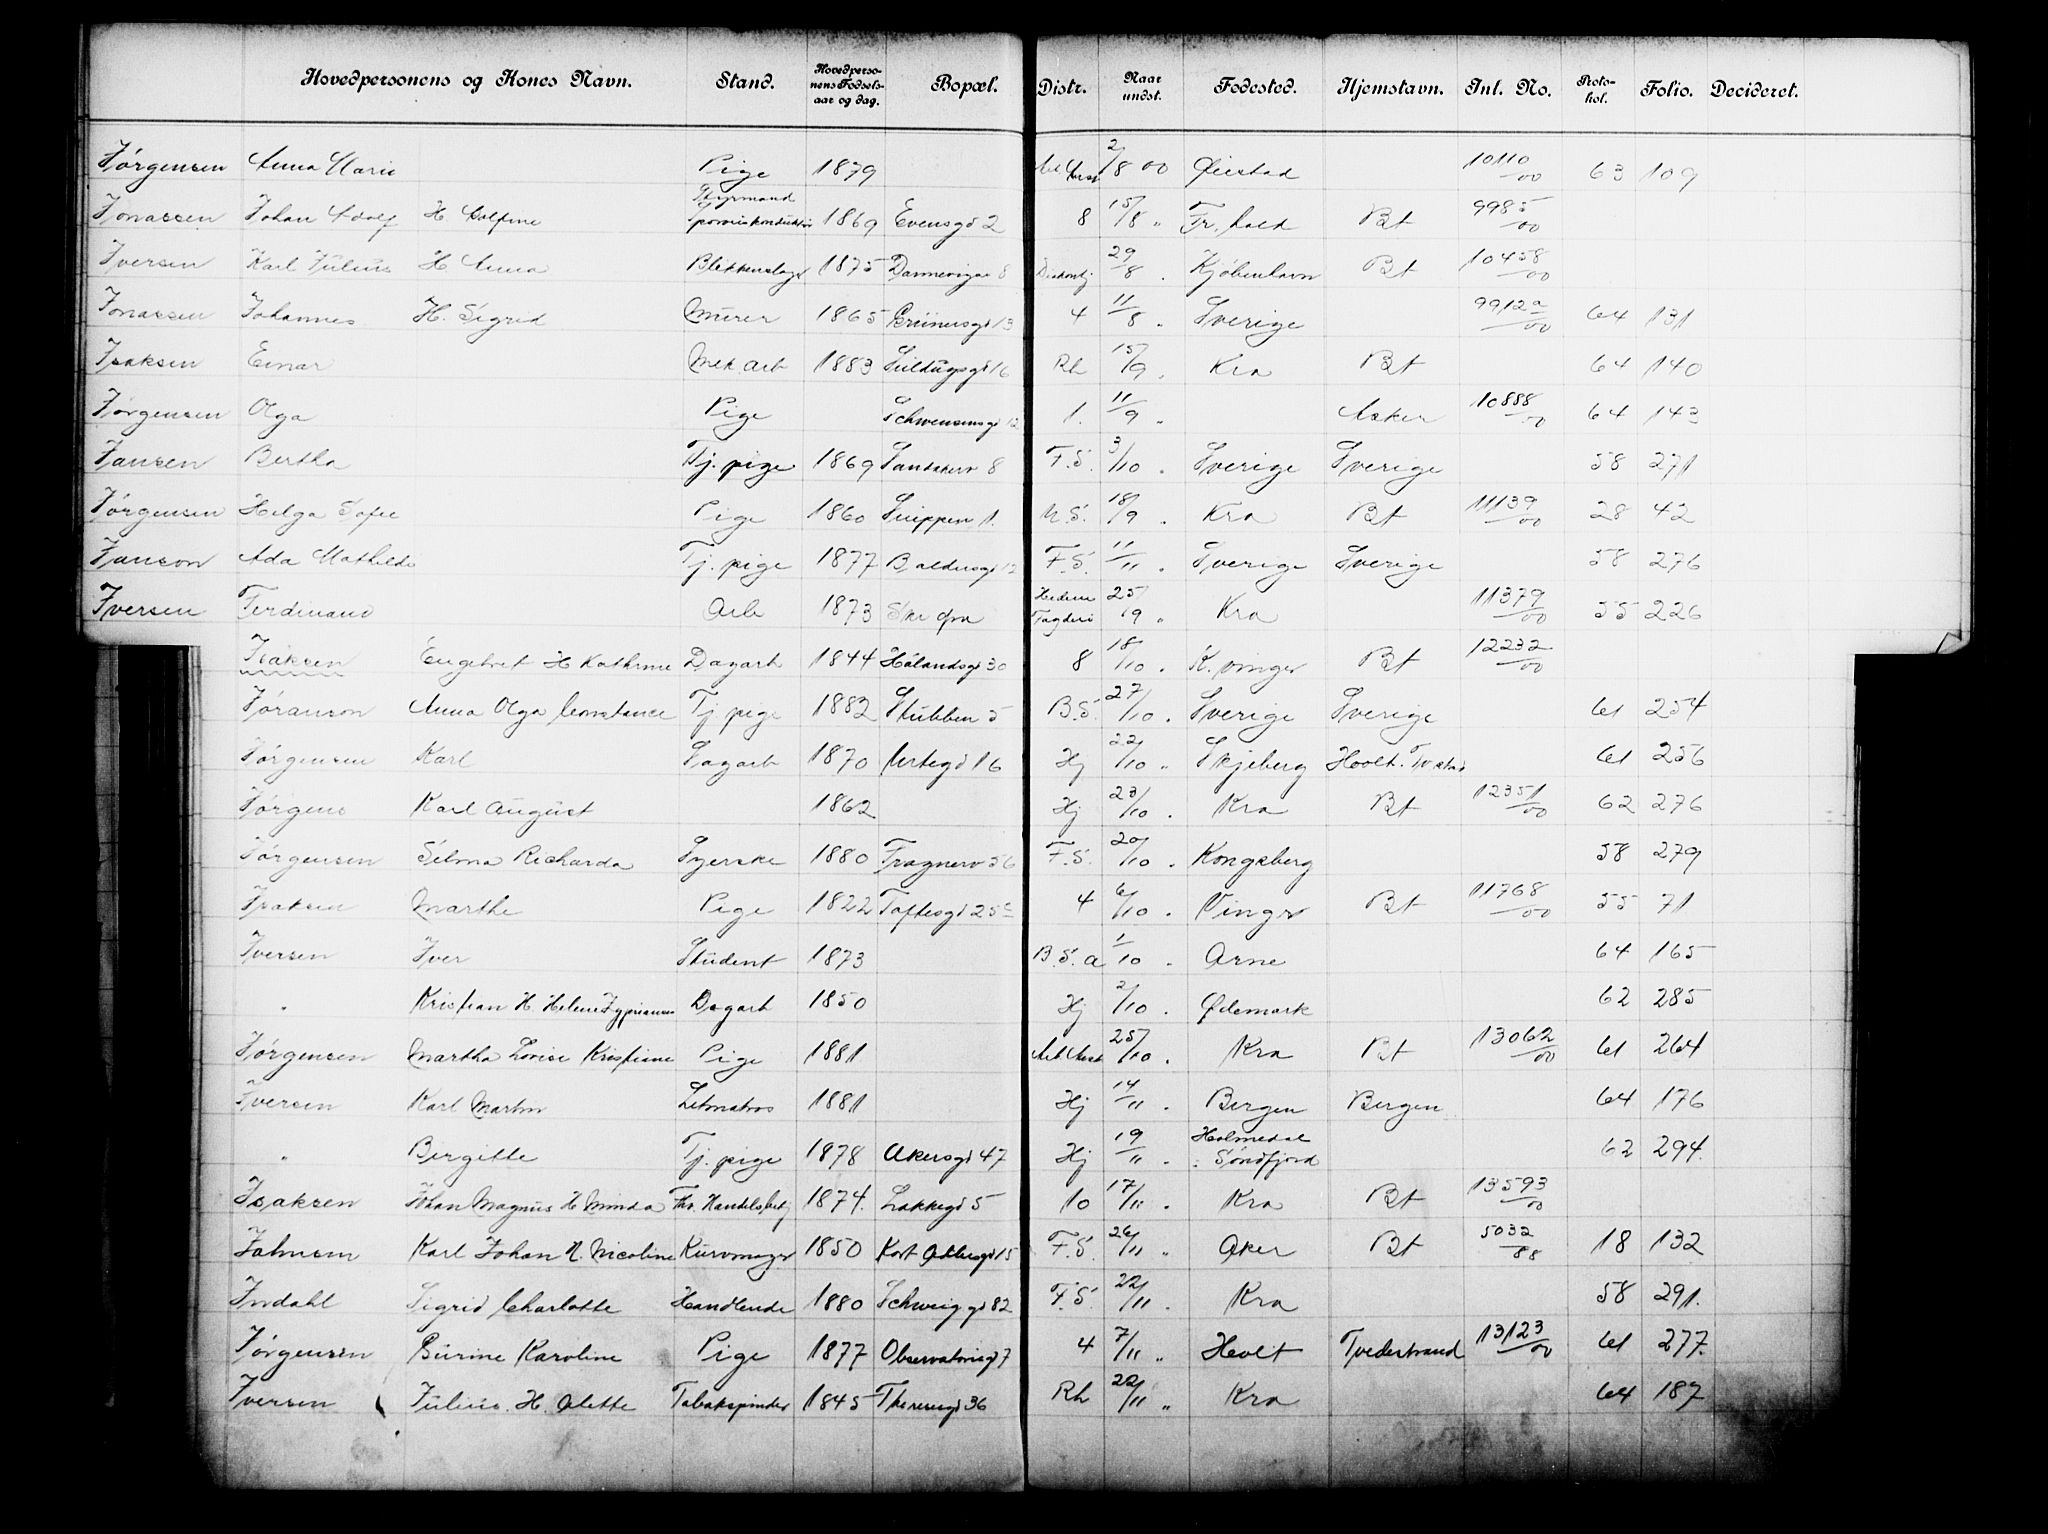 Hovedpersonens og Kones Navn. Stand. Hovedpersonens Fødselsaar og dag. Bopæl. Distr. Naar undst. Fødested. Hjemstavn. Inl. No. Protokol. Folio. Decideret.
Jørgensen Anna Marie Pige 1879 2/8 00 Øiestad 10110/00 63 109
Jonassen Johan Adolf H Dolfine Styrmand Sporveiskonduktør 1869 Evensgd 2 8 15/8 " Fr.hald Bt 9985/00
Iversen Karl Julius H Anna Blikkenslager 1875 Dannevigsv 8 Diakonhj 29/8 " Kjøbenhavn Bt 10458/00
Jonassen Johannes H. Sigrid Murer 1865 Grünersgd 13 4 11/8 " Sverige 9912a/00 64 131
Isaksen Einar Mek arb 1883 Siltugsgd 16 Rh 15/9 " Kra Bt 64 140
Jørgensen Olga Pige Schwensensgd 12 1. 11/9 " Asker 10888/00 64 143
Jansen Bertha Tj. pige 1869 8 F.S. 3/10 " Sverige Sverige 58 271
Jørgensen Helga Sofie Pige 1860 Snippen 1. N.S. 18/9 " Kra Bt 11139/00 28 42
Janson Ada Mathilde Tj. pige 1877 Baldersgd 12 F.S. 11/11 " Sverige Sverige 58 276
Iversen Ferdinand Arb 1873 25/9 " Kra 11379/00 55 226
Isaksen Engebret H Kathrine Dagarb 1844 Hålandsgd 30 8 18/10 " K.vinger Bt 12232/00
Jøranson Anna Olga Constance Tj pige 1882 Stubben 5 B.S. 27/10 " Sverige Sverige 61 254
Jørgensen Karl Dagarb 1870 Urtegd 16 Hj 22/10 " Skjeberg Hovlt. Tvestad 61 256
Jørgens Karl August 1862 Hj 23/10 " Kra Bt 12351/00 62 276
Jørgensen Selma Richarda Syerske 1880 Frognerv 56 F.S. 20/10 " Kongsberg 58 279
Isaksen Marthe Pige 1822 Toftesgd 25c 4 6/10 " Vinger Bt 11768/00 55 71
Iversen Iver Student 1873 B.S.a 1/10 " Arne 64 165
" Kristian H. Helene Zypriansen Dagarb 1850 Hj 2/10 " Ødemark 62 285
Jørgensen Martha Lovise Kristiane Pige 1881 25/10 " Kra Bt 13062/00 61 264
Iversen Karl Martin Letmatros 1881 Hj 14/11 " Bergen Bergen 64 176
" Birgitte Tj. pige 1878 Akersgd 47 Hj 19/11 " Holmedal i Søndfjord 62 294.
Isaksen Johan Magnus H Minda Fhv. Handelsbetj 1874. Lakkegd 5 10 17/11 " Kra Bt 13593/00
Johnsen Karl Johan H. Nicoline Kurvmager 1850 Kort Adelersgd 15 F.S. 26/11 " Aker Bt 5032/88 18 132
Indahl Sigrid Charlotte Handlende 1880 Schweiggd 82 F.S. 22/11 " Kra 58 291.
Jørgensen Burine Karoline Pige 1877 Observatoriegd 7 4 7/11 " Holt Tvedestrand 13123/00 61 277.
Iversen Julius. H. Alette Tobakspinder 1845 Theresesgd 36 Rh 22/11 " Kra 64 187